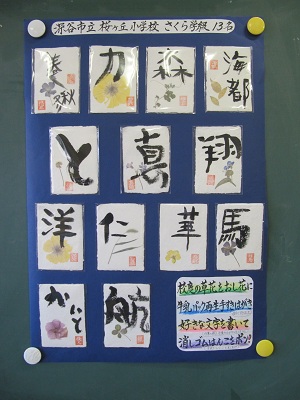 深谷市立 桜ヶ丘小学校 さくら学級 13名
力
森
海都
と
真
翔
洋
仁
華
馬
航
校庭の草花をおし花に
牛乳パック再生手すきはがき
好きな文字を書いて
消しゴムはんこをポン!